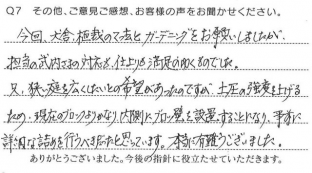 Q7 その他、ご意見ご感想、お客様の声をお聞かせください。
今回、大谷植栽の工法とガーデニングをお願いしましたが、
担当の武内さまの対応も、仕上りも満足の行くものでした。
又、狭い庭を広くしたいとの希望があったのですが、土圧の強度を上げる
ため、現在のブロックよりかなり内側にブロック壁を設置することになり、事前に
詳細な詰めを行うべきだったと思っています。本当に有難うございました。
ありがとうございました。今後の指針に役立たせていただきます。